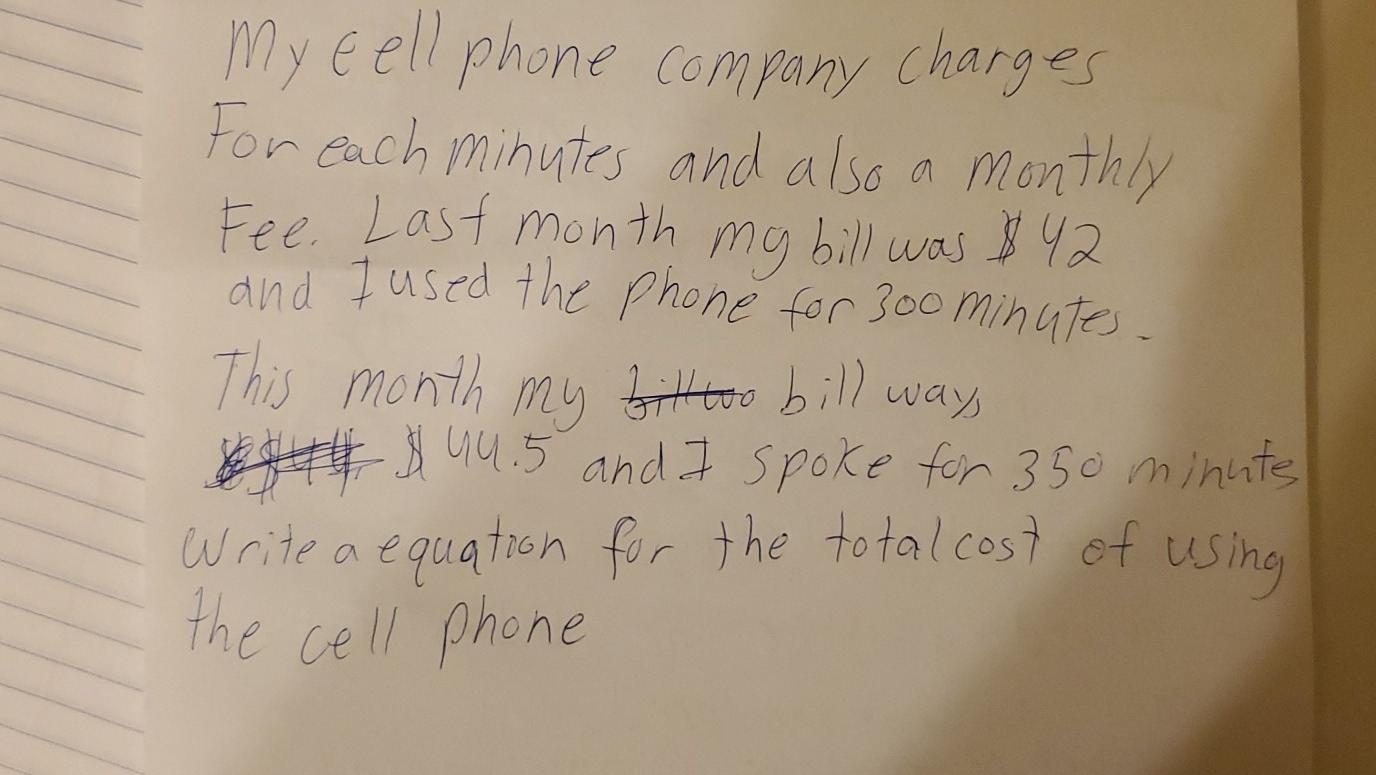 My cell phone company charges
For each minutes and also a monthly
Fee. Last month my bill was $42
and I used the phone for 300 minutes.
This month my bill way
$44.5 and I spoke for 350 minute
Write a equation for the total cost of using
the cell phone